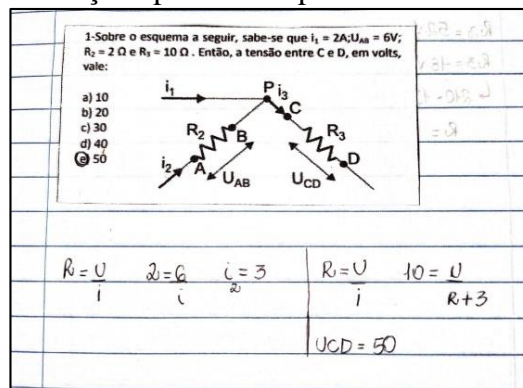 1-Sobre o esquema a seguir, sabe-se que i₁ = 2A;U_AB = 6V;
R₂ = 2 Ω e R₃ = 10 Ω . Então, a tensão entre C e D, em volts,
vale:
a) 10
b) 20
c) 30
d) 40
e) 50
i₁
P
i₃
C
R₂
B
R₃
i₂
A
D
U_AB
U_CD
R = U/i 2 = 6/i i₂ = 3
R = U/i 10 = U/R+3
UCD = 50